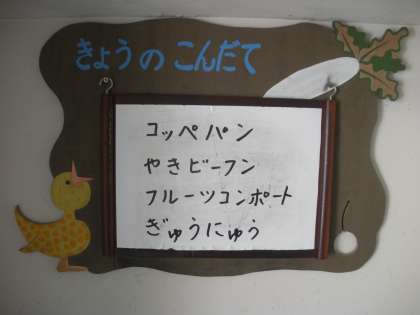 きょうのこんだて
コッペパン
やきビーフン
フルーツコンポート
ぎゅうにゅう